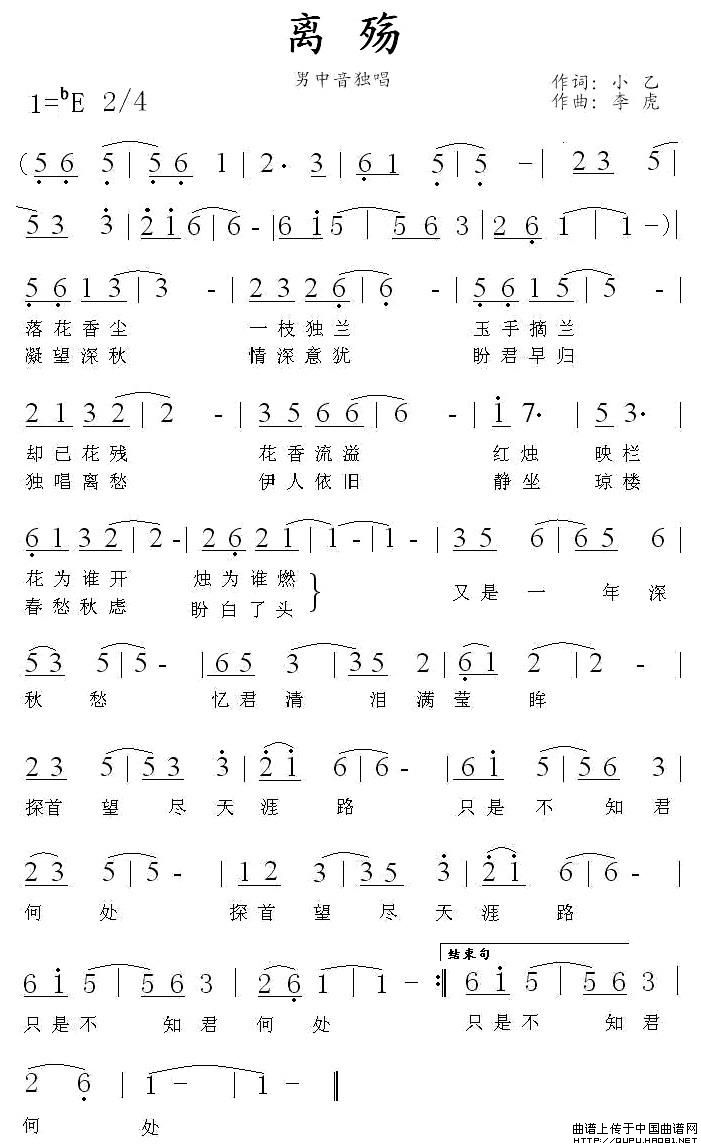 离 殇
男中音独唱
作词：小 乙
1=ᵇE 2/4 作曲：李 虎
(5 6 5 | 5 6 1 | 2· 3 | 6 1 5 | 5 - | 2 3 5 |
5 3 3 | 2 i 6 | 6 - | 6 i 5 | 5 6 3 | 2 6 1 | 1 -) |
5 6 1 3 | 3 - | 2 3 2 6 | 6 - | 5 6 1 5 | 5 - |
落花香尘 一枝独兰 玉手摘兰
凝望深秋 情深意犹 盼君早归
2 1 3 2 | 2 - | 3 5 6 6 | 6 - | i 7· | 5 3· |
却已花残 花香流溢 红烛 映栏
独唱离愁 伊人依旧 静坐 琼楼
6 1 3 2 | 2 - | 2 6 2 1 | 1 - | 1 - | 3 5 6 | 6 5 6 |
花为谁开 烛为谁燃
又是一 年深
春愁秋虑 盼白了头
5 3 5 | 5 - | 6 5 3 | 3 5 2 | 6 1 2 | 2 - |
秋 愁 忆君清 泪满莹 眸
2 3 5 | 5 3 3 | 2 i 6 | 6 - | 6 i 5 | 5 6 3 |
探首 望 尽天涯 路 只是不 知君
2 3 5 | 5 - | 1 2 3 | 3 5 3 | 2 i 6 | 6 - |
何 处 探首 望 尽天涯 路
结束句
6 i 5 | 5 6 3 | 2 6 1 | 1 - :‖ 6 i 5 | 5 6 3 |
只是不 知君何 处 只是不 知君
2 6 | 1 - | 1 - ‖
何 处
曲谱上传于中国曲谱网
HTTP://QUPU.HAO81.NET